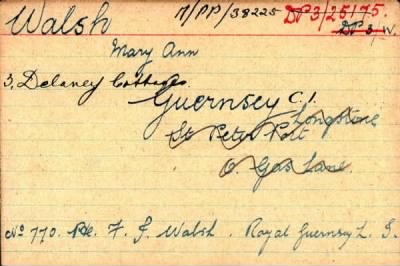 Walsh M/PP/38225 DP 3/25/75.
DP 3/W.
Mary Ann
3, Delaney Cottages
Guernsey C.I.
Longstore
St Peter Port
6. Gas Lane.
No 770. Pte. F. J. Walsh. Royal Guernsey L. I.